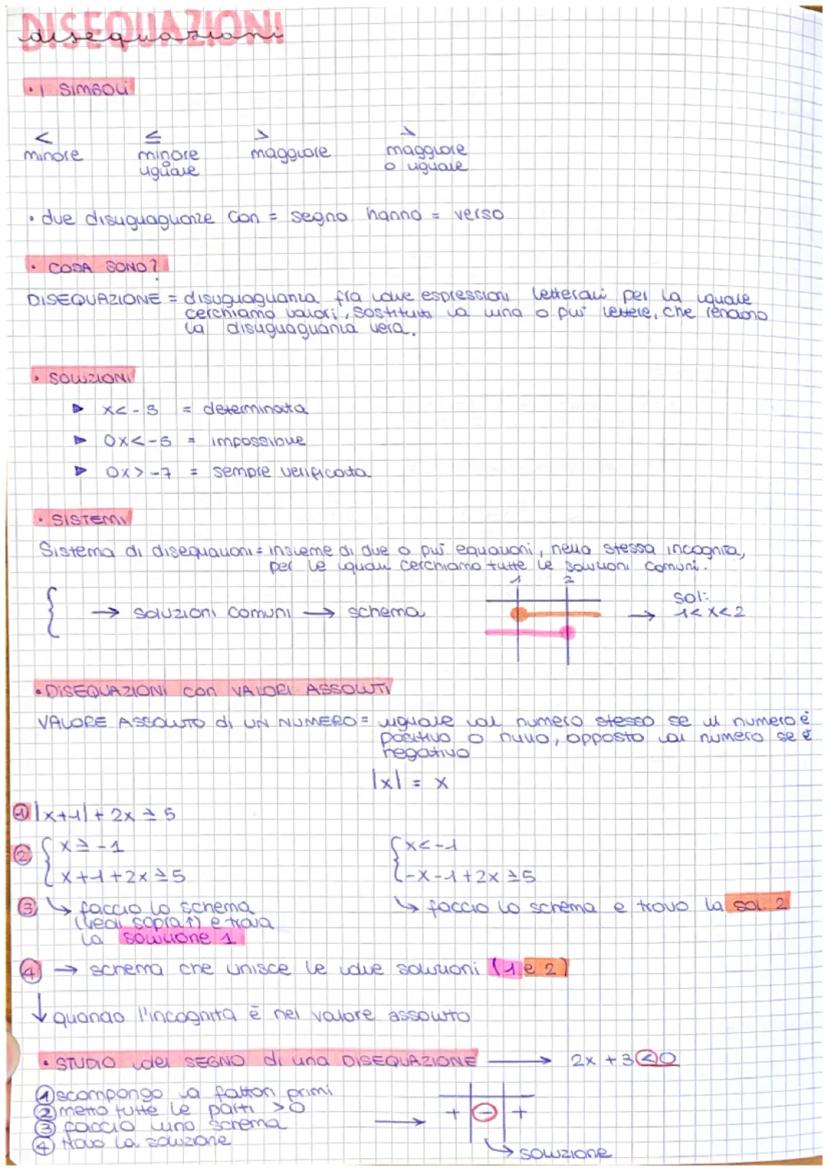 DISEQUAZIONI
disequazioni
• I SIMBOLI
< ≤ > ≥
minore minore uguale maggiore maggiore o uguale
• due disuguaglianze con = segno hanno = verso
• COSA SONO?
DISEQUAZIONE = disuguaglianza fra due espressioni letterali per la quale
cerchiamo valori, sostituiti a una o più lettere, che rendono
la disuguaglianza vera.
• SOLUZIONI
▶ x<-3 = determinata
▶ 0x<-5 = impossibile
▶ 0x>-7 = sempre verificata
• SISTEMI
Sistema di disequazioni = insieme di due o più equazioni, nella stessa incognita,
per le quali cerchiamo tutte le soluzioni comuni.
{ → soluzioni comuni → schema 1 2 → sol: 1<x<2
• DISEQUAZIONI con VALORI ASSOLUTI
VALORE ASSOLUTO di UN NUMERO = uguale al numero stesso se il numero è
positivo o nullo, opposto al numero se è
negativo
|x| = x
① |x+1| + 2x ≥ 5
② { x ≥ -1 { x < -1
x+1+2x ≥ 5 -x-1+2x ≥ 5
③ ↳ faccio lo schema ↳ faccio lo schema e trovo la sol. 2
(vedi sopra ↑) e trova
la soluzione 1
④ → schema che unisce le due soluzioni (1 e 2)
↓ quando l'incognita è nel valore assoluto
• STUDIO del SEGNO di una DISEQUAZIONE → 2x + 3 < 0
① scompongo a fattori primi
② metto tutte le parti > 0
③ faccio uno schema → + - +
④ trovo la soluzione
↳ soluzione